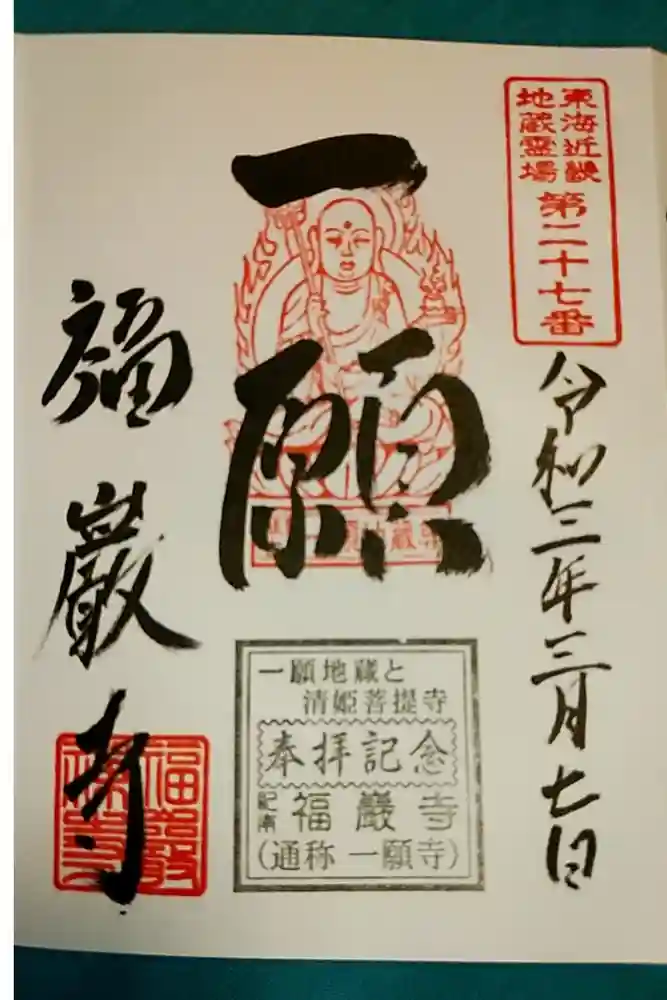 東海近畿
地蔵霊場
第二十七番
令和三年三月七日
一願
福巌寺
一願地蔵と
清姫菩提寺
奉拝記念
紀南
福巖寺
(通称 一願寺)